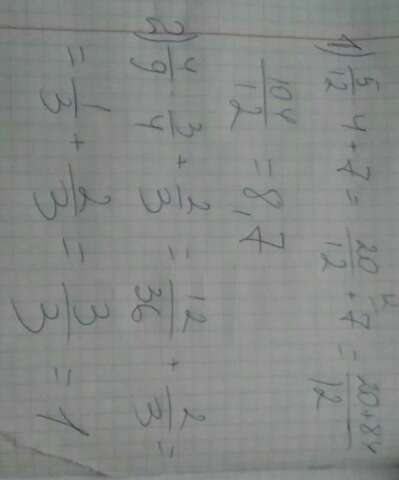 1) 5/12 4 + 7 = 20/12 + 7 = 20+84/12
104/12 = 8,7
2) 4/9 3/4 + 2/3 = 12/36 + 2/3 =
= 1/3 + 2/3 = 3/3 = 1